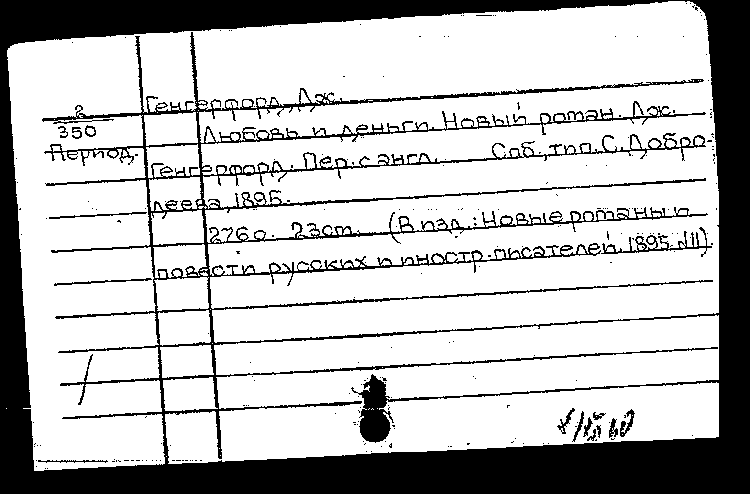 2
350
Период.
Генгерфорд, Дж.
Любовь и деньги. Новый роман. Дж.
Генгерфорд. Пер. с англ. Спб., тип. С. Добро-
деева, 1895.
276 с. 23 см. (В изд.: Новые романы и
повести русских и иностр. писателей. 1895 №11).